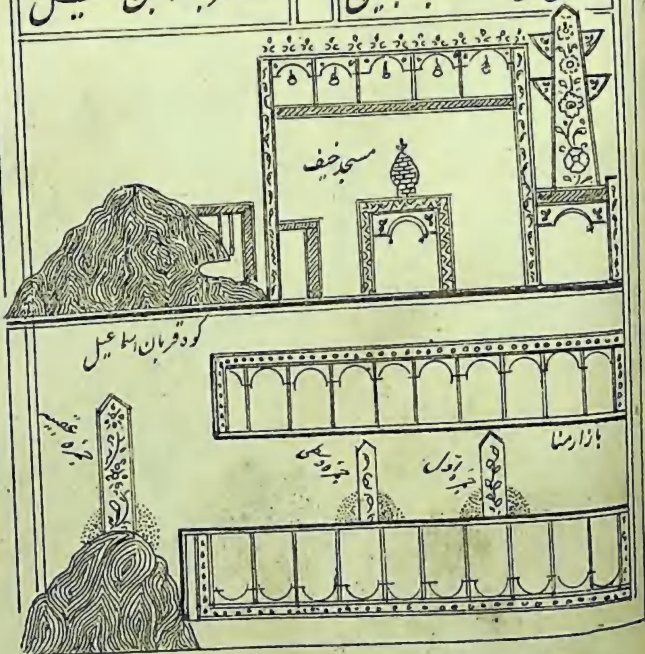 مسجد خیف
کوه قربان اسماعیل
بازار منا
جمره اولی
جمره وسطی
جمره عقبه